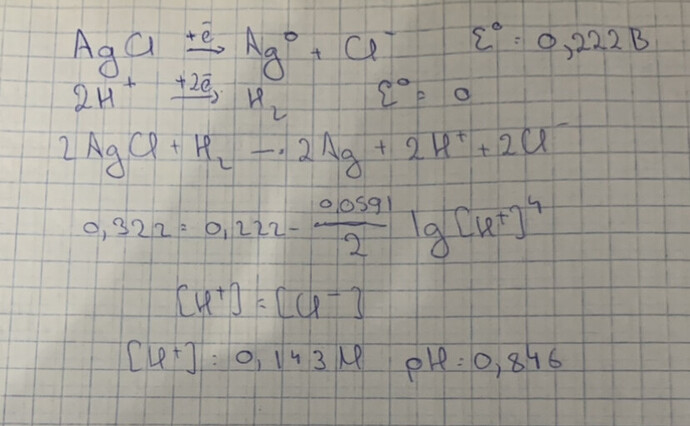 AgCl +ē → Ag⁰ + Cl⁻ ε⁰ = 0,222В
2H⁺ +2ē → H₂ ε⁰ = 0
2AgCl + H₂ → 2Ag + 2H⁺ + 2Cl⁻
0,322 = 0,222 - 0,0591/2 lg[H⁺]⁴
[H⁺] = [Cl⁻]
[H⁺] = 0,143M pH = 0,846